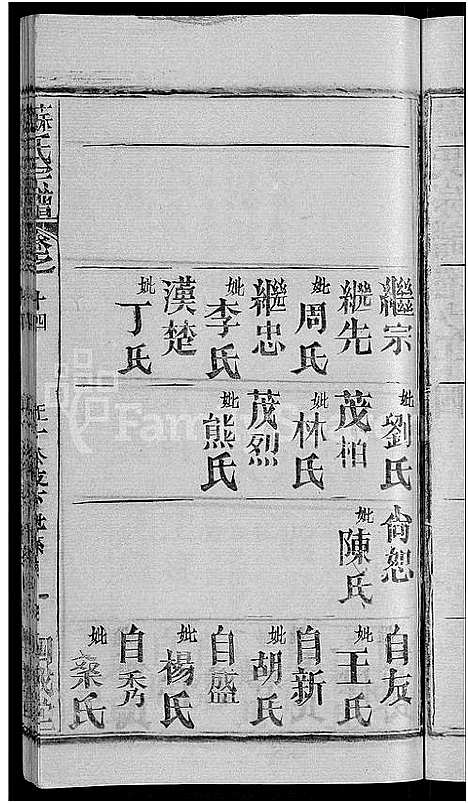 繼宗
繼先
妣周氏
繼忠
妣李氏
漢楚
妣丁氏
妣劉氏
茂柏
妣林氏
茂烈
妣熊氏
尙恕
妣陳氏
自友
妣王氏
自新
妣胡氏
自盛
妣楊氏
自秀
妣桑氏
蘇氏宗譜
卷之
十四